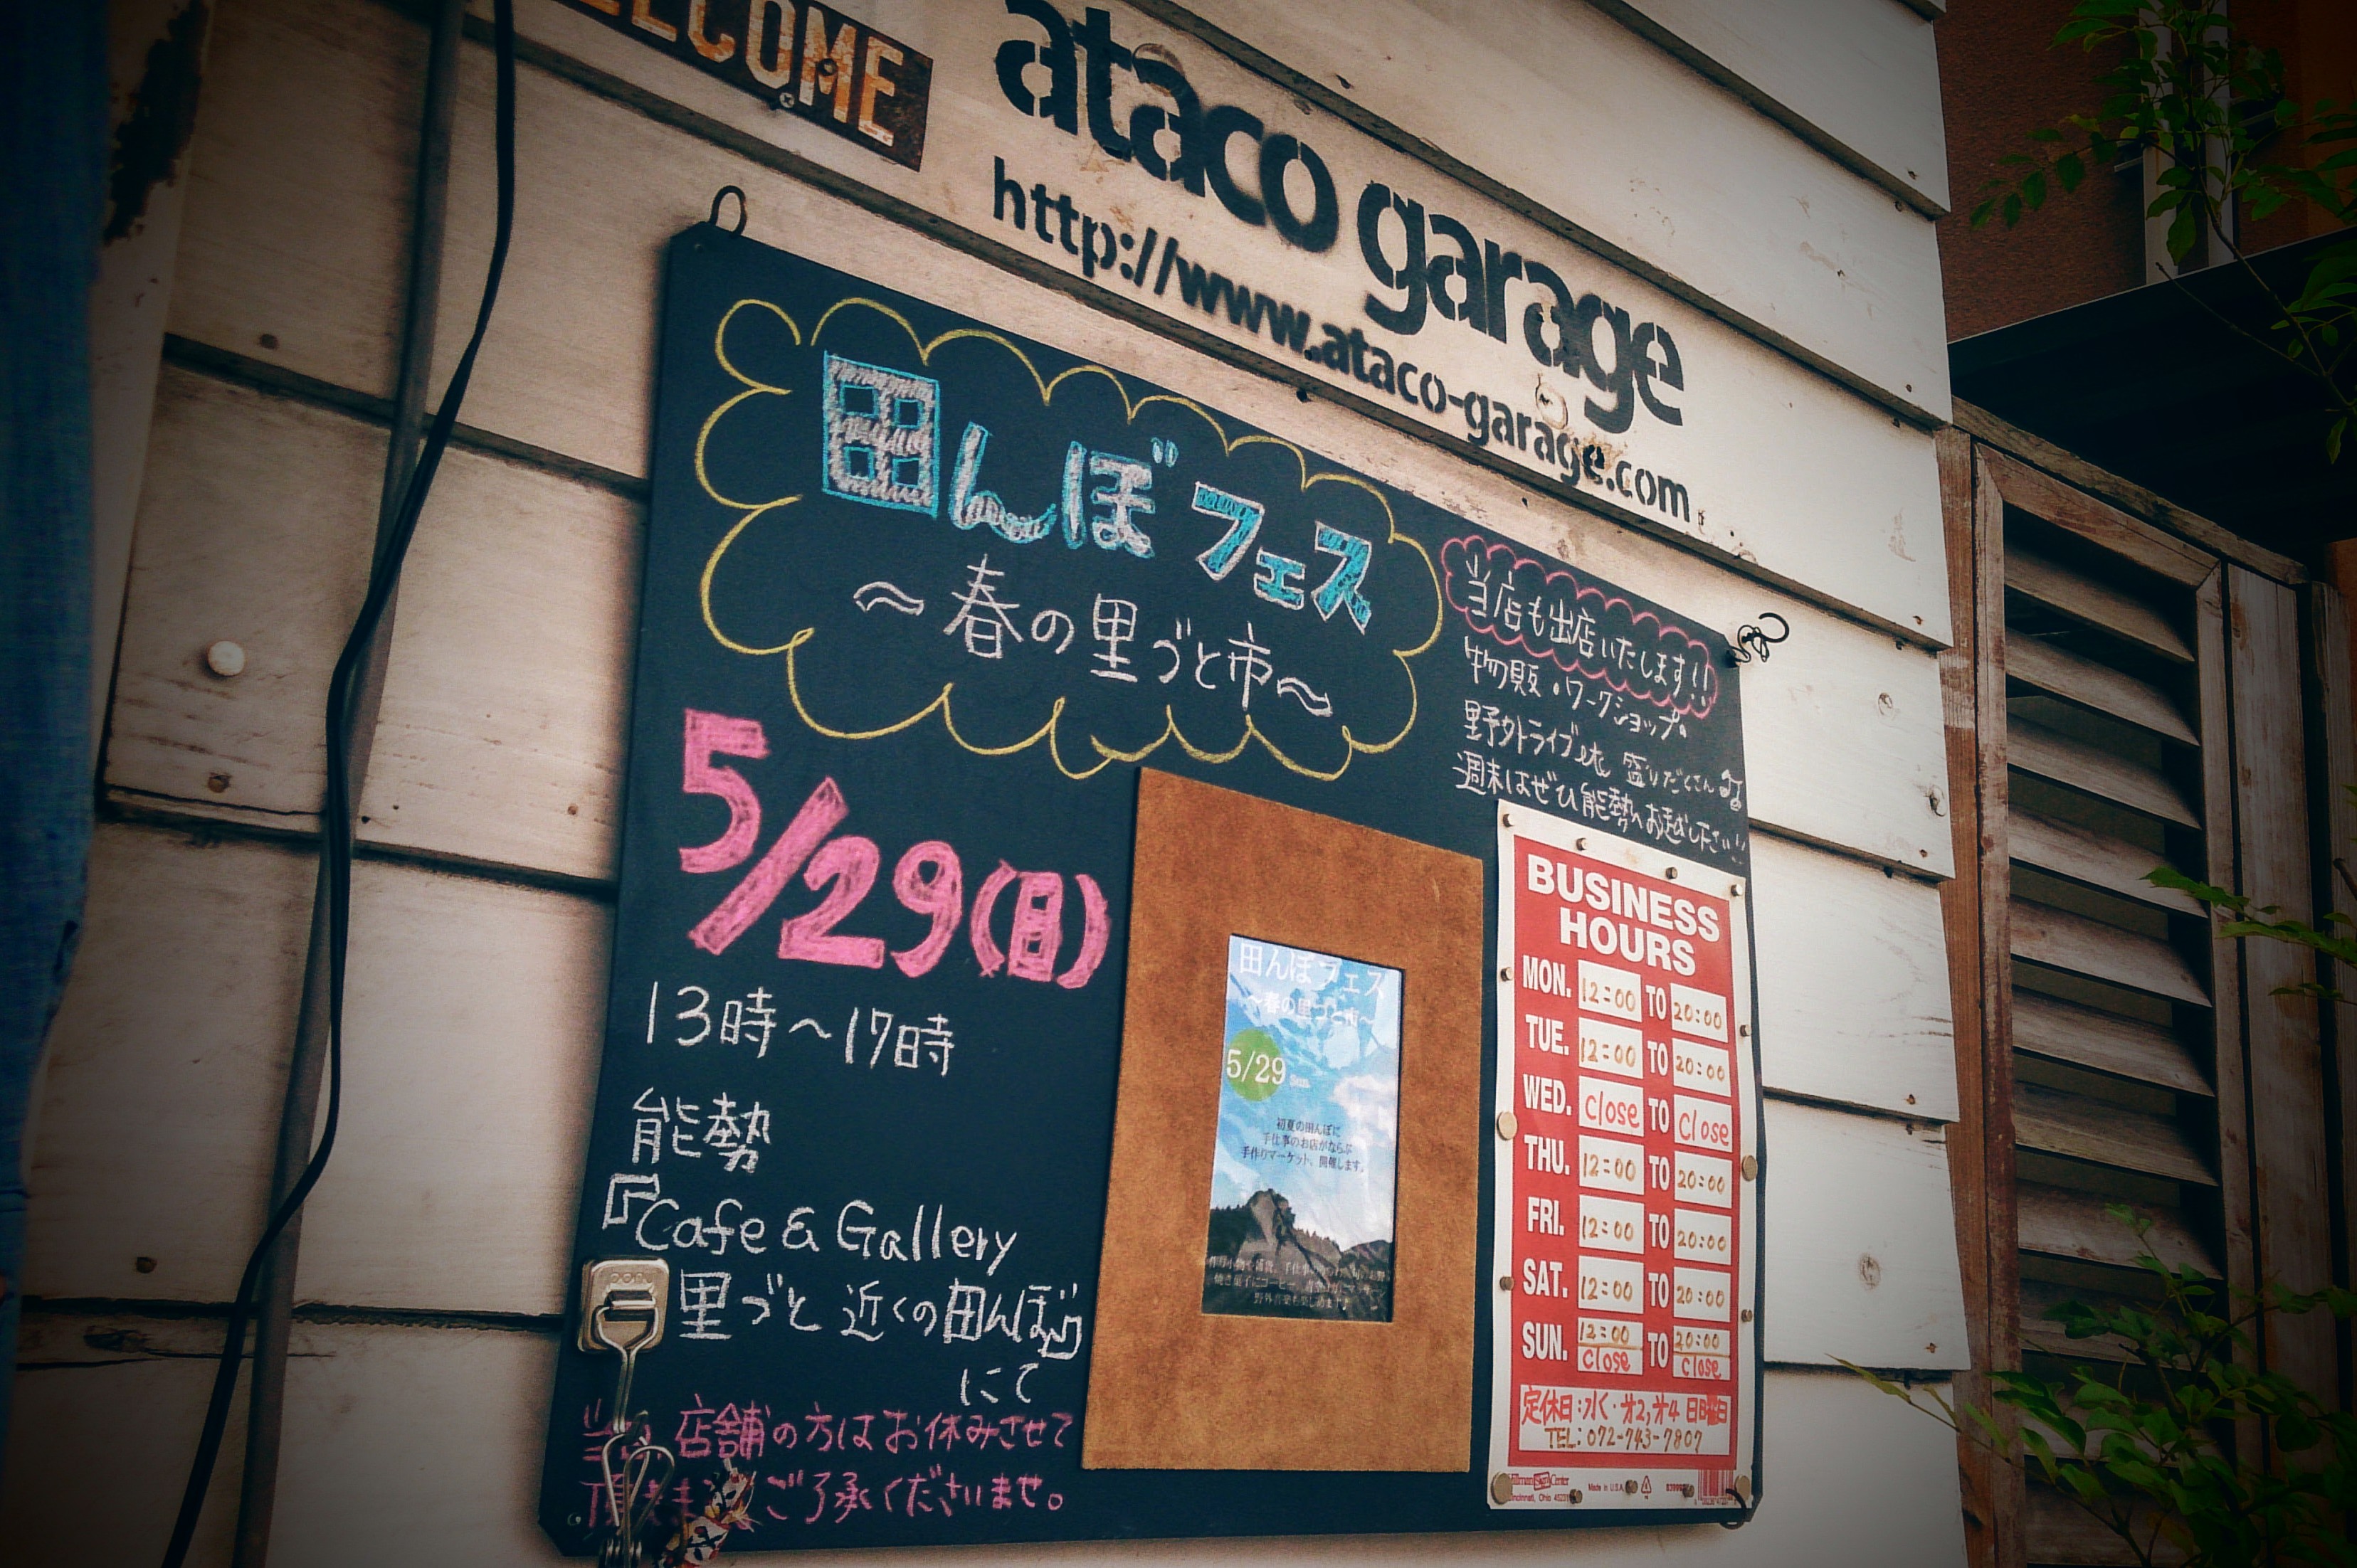 WELCOME
ataco garage
http://www.ataco-garage.com
田んぼフェス
～春の里づと市～
当店も出店いたします!!
物販・ワークショップ。
野外ライブetc 盛りだくさん♫
週末はぜひ能勢へお越し下さい!!
5/29(日)
13時～17時
能勢
『Cafe & Gallery
里づと 近くの田んぼ』
にて
店舗の方はお休みさせて
ご了承くださいませ。
田んぼフェス
～春の里づと市～
5/29 Sun.
初夏の田んぼに
手仕事のお店がならぶ
手作りマーケット、開催します。
野外音楽も楽しめます♪
BUSINESS
HOURS
MON. 12:00 TO 20:00
TUE. 12:00 TO 20:00
WED. Close TO Close
THU. 12:00 TO 20:00
FRI. 12:00 TO 20:00
SAT. 12:00 TO 20:00
SUN. 12:00 TO 20:00
Close Close
定休日:水・才2,才4 日曜日
TEL:072-743-7807
Made in U.S.A.